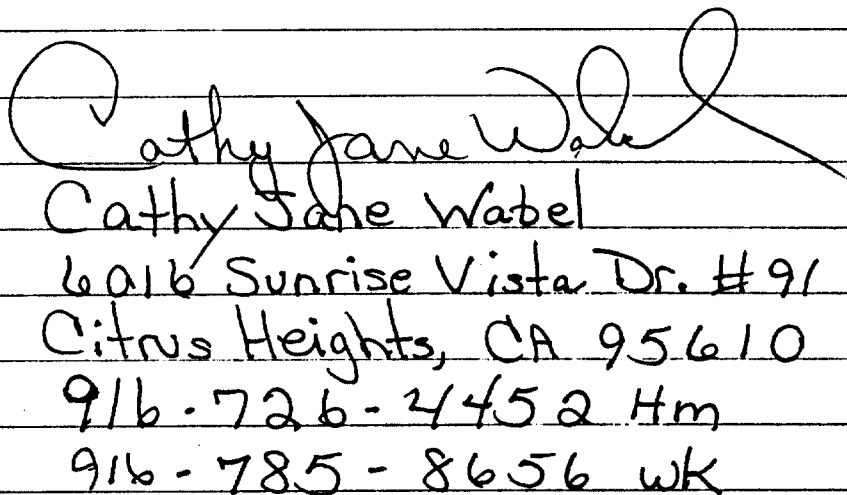 Cathy Jane Wabel
Cathy Jane Wabel
6016 Sunrise Vista Dr. #91
Citrus Heights, CA 95610
916-726-4452 Hm
916-785-8656 WK